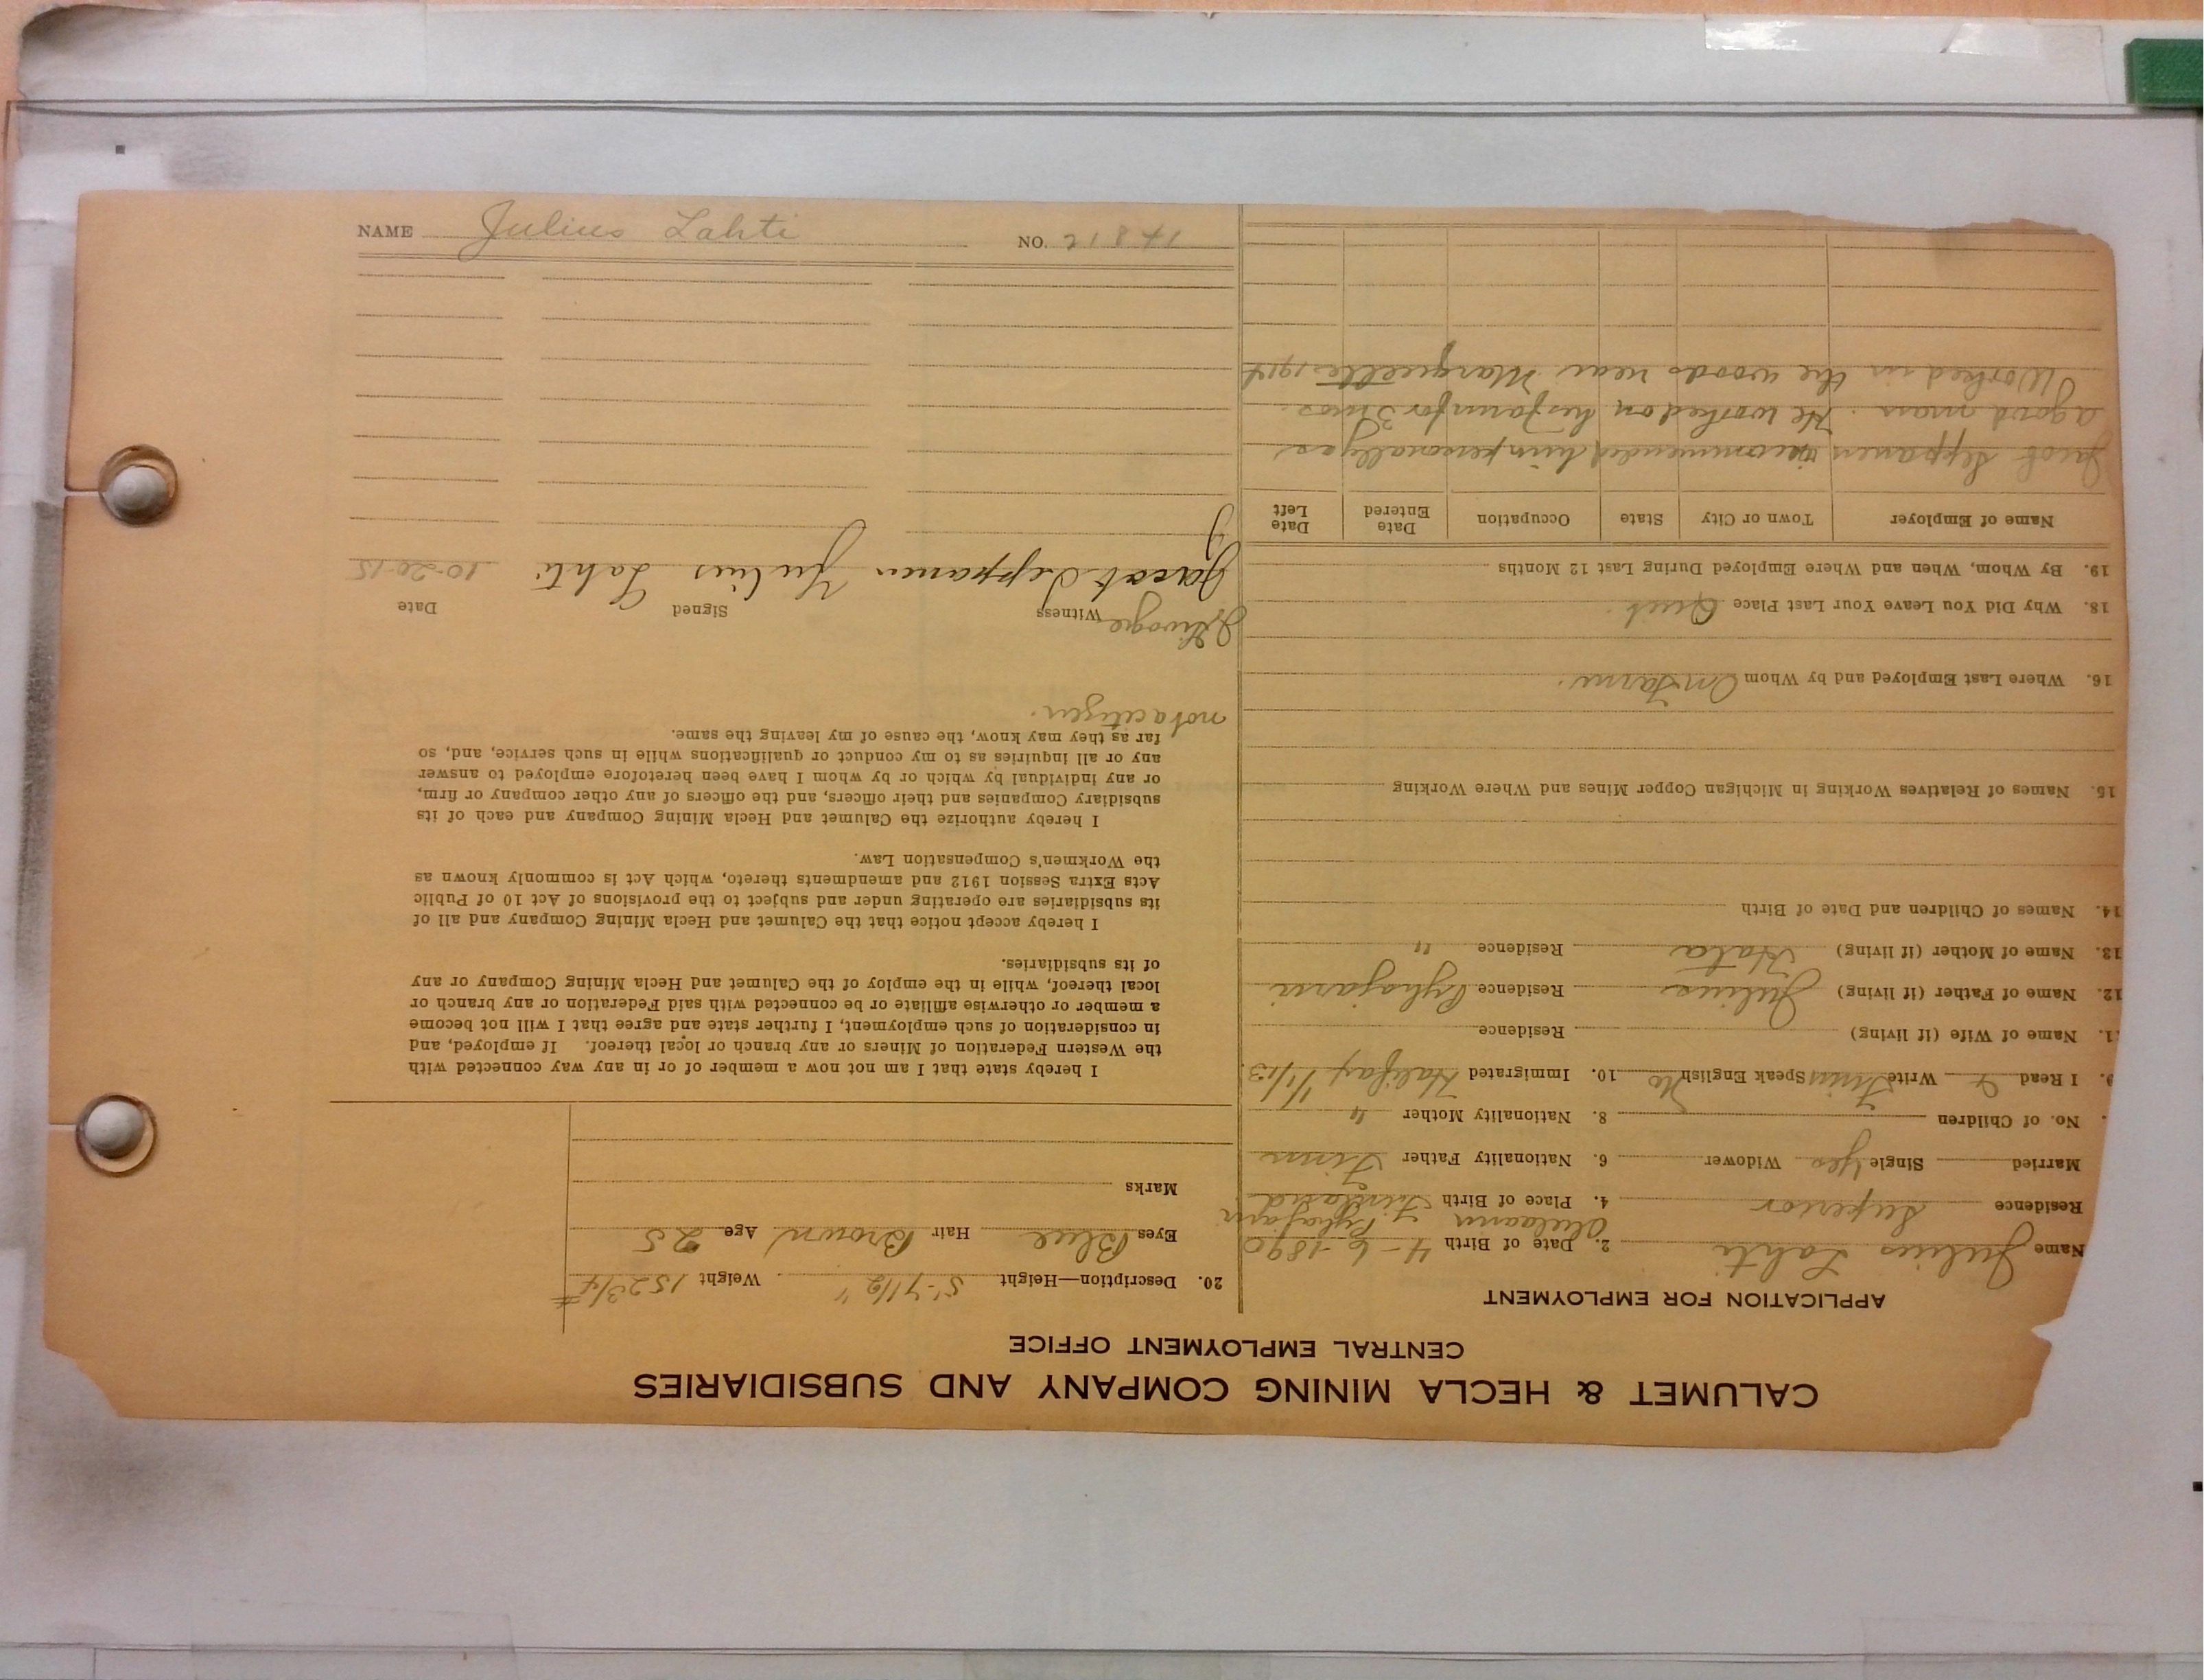 CALUMET & HECLA MINING COMPANY AND SUBSIDIARIES
CENTRAL EMPLOYMENT OFFICE
APPLICATION FOR EMPLOYMENT
Name Julius Lahti 2. Date of Birth 4-6-1890
Pyhajarvi
Residence Superior 4. Place of Birth Finland
Married Single Yes Widower 6. Nationality Father Finn
No. of Children 8. Nationality Mother "
9. I Read & Write Finn Speak English No 10. Immigrated Halifax 1/1/13
11. Name of Wife (if living) Residence
12. Name of Father (if living) Julius Residence Pyhajarvi
13. Name of Mother (if living) Residence "
14. Names of Children and Date of Birth
15. Names of Relatives Working in Michigan Copper Mines and Where Working
16. Where Last Employed and by Whom On Farm.
18. Why Did You Leave Your Last Place Quit.
19. By Whom, When and Where Employed During Last 12 Months
Name of Employer Town or City State Occupation Date Entered Date Left
Jacob Seppanen recommended him personally as
a good man. He worked on his farm for 3 mos.
Worked in the woods near Marquette 1914
20. Description—Height 5'-7 1/2" Weight 152 3/4 #
Eyes Blue Hair Brown Age 25
Marks
I hereby state that I am not now a member of or in any way connected with
the Western Federation of Miners or any branch or local thereof. If employed, and
in consideration of such employment, I further state and agree that I will not become
a member or otherwise affiliate or be connected with said Federation or any branch or
local thereof, while in the employ of the Calumet and Hecla Mining Company or any
of its subsidiaries.
I hereby accept notice that the Calumet and Hecla Mining Company and all of
its subsidiaries are operating under and subject to the provisions of Act 10 of Public
Acts Extra Session 1912 and amendments thereto, which Act is commonly known as
the Workmen's Compensation Law.
I hereby authorize the Calumet and Hecla Mining Company and each of its
subsidiary Companies and their officers, and the officers of any other company or firm,
or any individual by which or by whom I have been heretofore employed to answer
any or all inquiries as to my conduct or qualifications while in such service, and, so
far as they may know, the cause of my leaving the same.
not a citizen.
Witness Signed Date
Jacob Seppanen Julius Lahti 10-20-15
NAME Julius Lahti NO. 21841